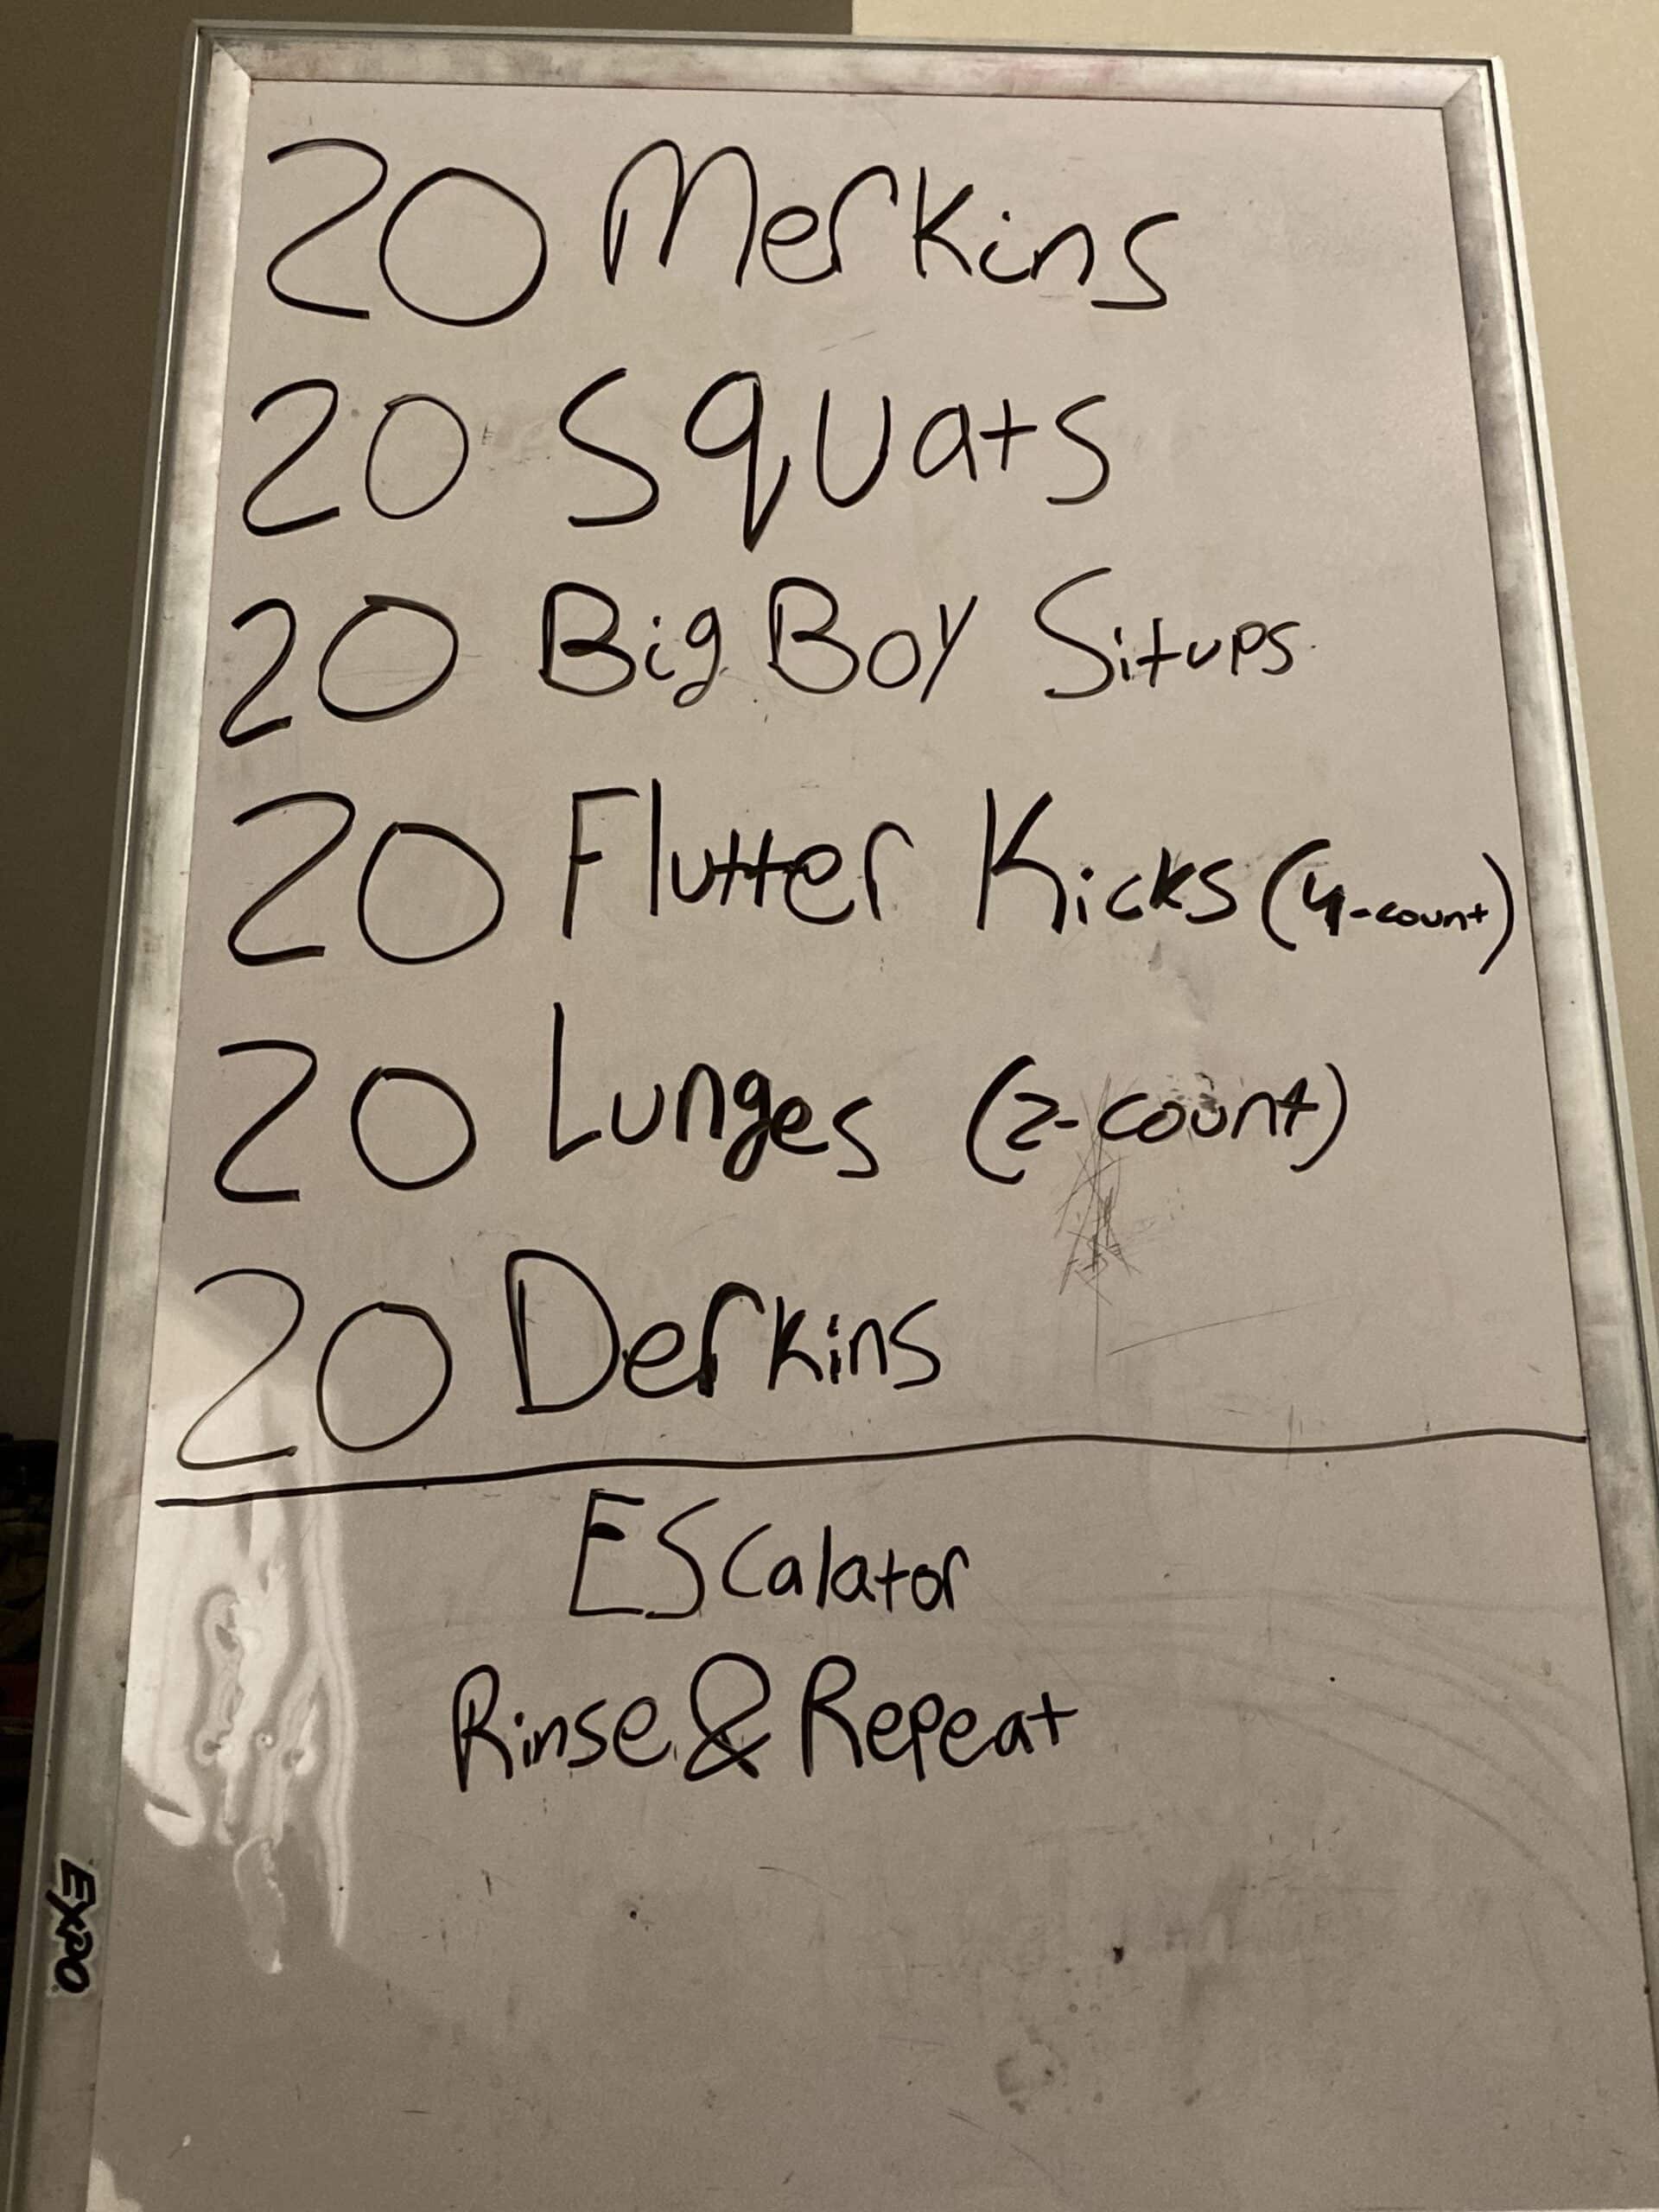 20 Merkins
20 Squats
20 Big Boy Situps
20 Flutter Kicks (4-count)
20 Lunges (2-count)
20 Derkins
EScalator
Rinse & Repeat
EXPO